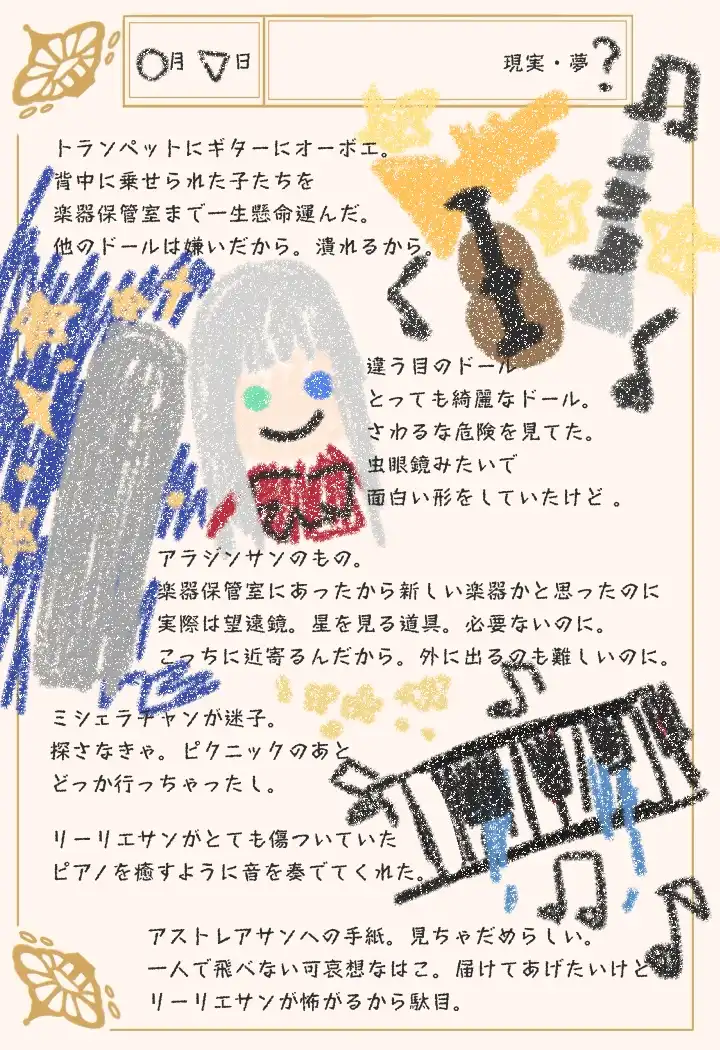 ○月 ▽日
現実・夢?
トランペットにギターにオーボエ。
背中に乗せられた子たちを
楽器保管室まで一生懸命運んだ。
他のドールは嫌いだから。潰れるから。
違う目のドール
とっても綺麗なドール。
さわるな危険を見てた。
虫眼鏡みたいで
面白い形をしていたけど 。
アラジンサンのもの。
楽器保管室にあったから新しい楽器かと思ったのに
実際は望遠鏡。星を見る道具。必要ないのに。
こっちに近寄るんだから。外に出るのも難しいのに。
ミシェラチャンが迷子。
探さなきゃ。ピクニックのあと
どっか行っちゃったし。
リーリエサンがとても傷ついていた
ピアノを癒すように音を奏でてくれた。
アストレアサンへの手紙。見ちゃだめらしい。
一人で飛べない可哀想なはこ。届けてあげたいけど
リーリエサンが怖がるから駄目。